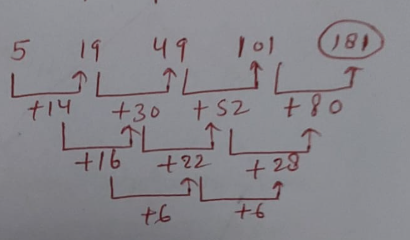 5 19 49 101 181
+14 +30 +52 +80
+16 +22 +28
+6 +6